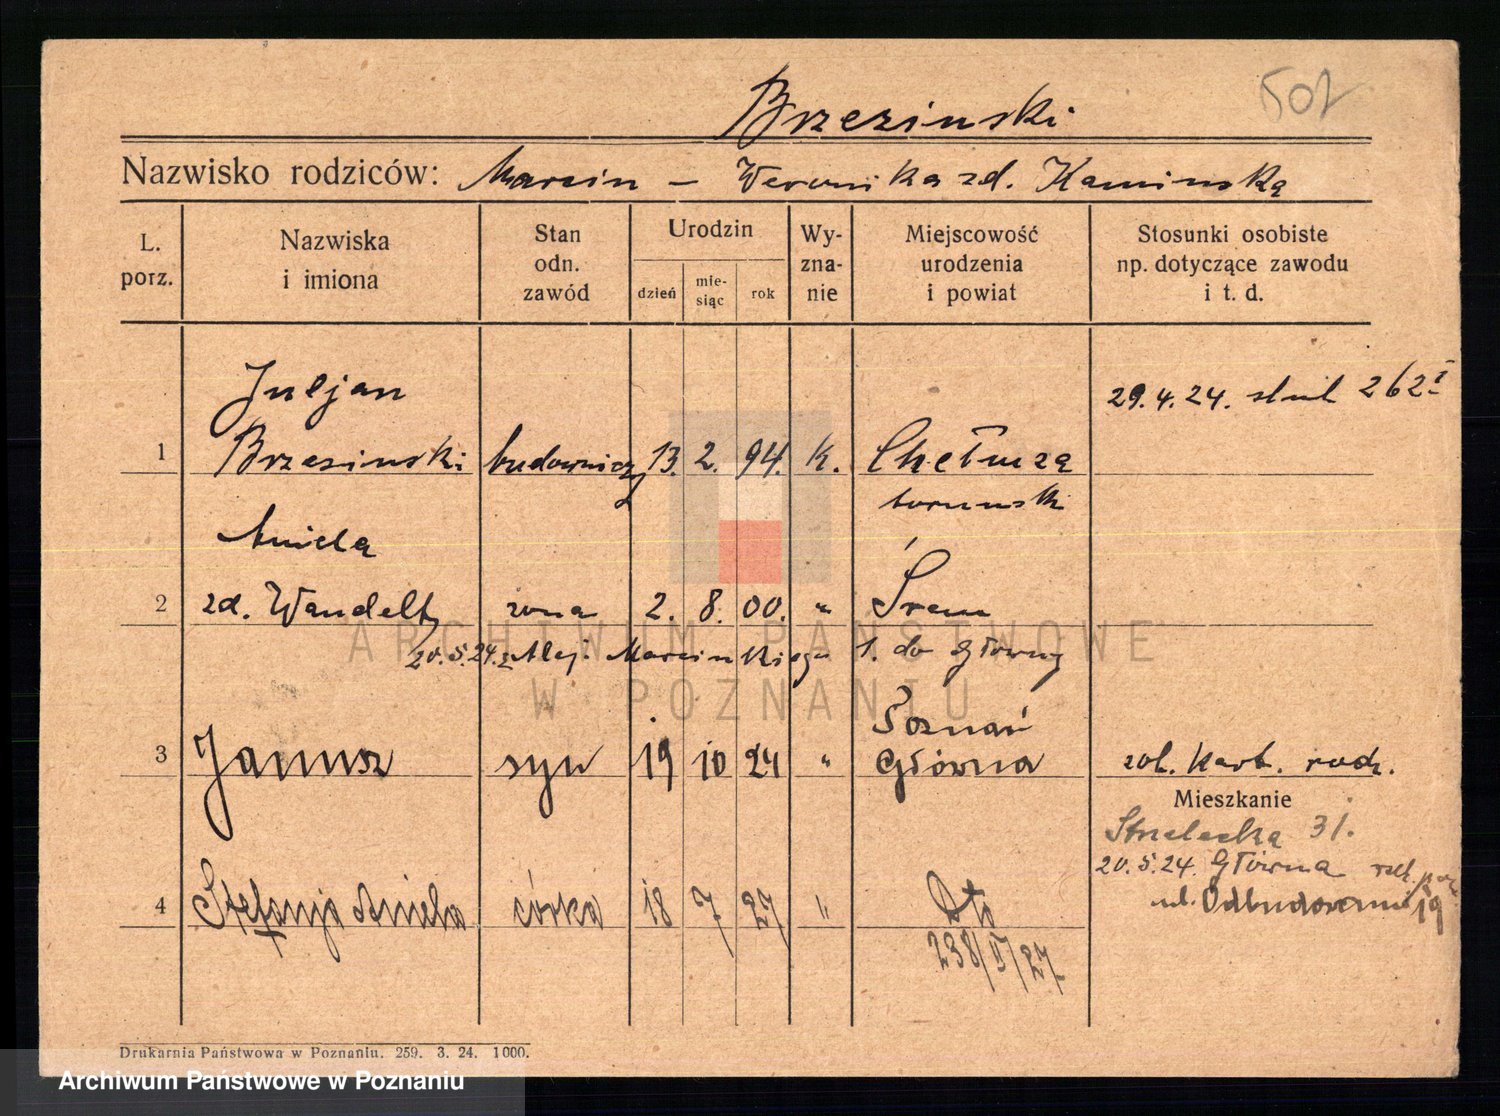 Brzezinski
Nazwisko rodziców: Marcin – Weronika zd. Kaminska
L. porz.
Nazwiska i imiona
Stan odn. zawód
Urodzin
dzień
mie-siąc
rok
Wy-zna-nie
Miejscowość urodzenia i powiat
Stosunki osobiste np. dotyczące zawodu i t. d.
Juljan
29.4.24. 262 I
1 Brzesinski budowniczy 13. 2. 94. K. Chełmza
torunski
Aniela
2 zd. Wandelt zona 2. 8. 00. " Śrem
20.5.24. z Alej. Marcinkiego 1. do Główny
Poznań
3 Janusz syn 19 10 24 " Główna zol. Kart. rodz.
Mieszkanie
Strzelecka 31.
20.5.24. Główna
ul. Odbudowania 19
4 Stefanja Aniela córka 18 7 27 " dto
238/II/27
Drukarnia Państwowa w Poznaniu. 259. 3. 24. 1000.
ARCHIWUM PAŃSTWOWE
W POZNANIU
Archiwum Państwowe w Poznaniu